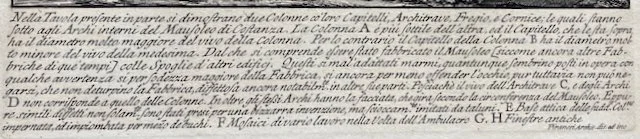 Nella Tavola presente in parte si dimostrano due Colonne co'loro Capitelli, Architrave, Fregio, e Cornice; le quali stanno
sotto agli Archi interni del Mausoleo di Costanza. La Colonna A è più sottile dell'altra, ed il Capitello, che le sta sopra,
ha il diametro molto maggiore del vivo della Colonna. Per lo contrario il Capitello della Colonna B ha il diametro mol-
to minore del vivo della medesima. Dal che si comprende essere stato fabbricato il Mausoleo (siccome ancora altre Fab-
briche di que' tempi) colle Spoglie d'altri edifizj. Questi sì mal adattati marmi, quantunque sembrino posti in opera con
qualche avvertenza sì per sodezza maggiore della Fabbrica, sì ancora per meno offender l'occhio, pur tuttavia non può ne-
garsi, che non deturpino la Fabbrica, diffettosa ancora notabilm. in altre sue parti. Posciachè il vivo dell'Architrave C, e degli Archi
D non corrisponde a quello delle colonne. In oltre gli stessi Archi hanno la facciata, che gira secondo la circonferenza del Mausoleo. Eppu-
re simili diffetti non solam. sono stati presi per una bizzarra invenzione, ma imitati da taluni. E Base Attica delle sudd. Col.
impernata, ed impiombata per mezo de' buchi. F Mosaici di vario lavoro nella Volta dell'Ambulacro G, H Finestre antiche
Piranesi Archit. dis. ed inc.